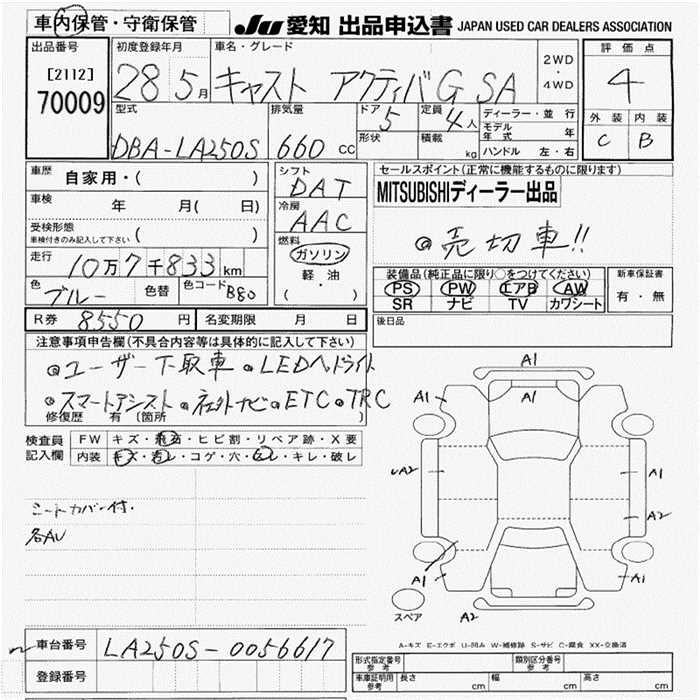 車内保管・守衛保管
JU 愛知 出品申込書 JAPAN USED CAR DEALERS ASSOCIATION
出品番号
[2112]
70009
初度登録年月
28 5月
車名・グレード
キャスト アクティバG SA
2WD
・
4WD
評価点
4
外装 内装
C B
型式
DBA-LA250S
排気量
660 CC
ドア
5
形状
定員
4人
積載
kg
ディーラー・並行
モデル年式 年
ハンドル 左・右
車歴
自家用・( )
車検
年 月( 日)
受検形態
車検付きのみ記入して下さい ( )
走行
10万7千833km
色
ブルー
色替
色コード
B80
シフト
DAT
冷房
AAC
燃料
ガソリン
軽・油
( )
セールスポイント(正常に機能するものに限ります)
MITSUBISHIディーラー出品
◎売切車!!
装備品(純正品に限り○をつけてください)
PS PW エアB AW
SR ナビ TV カワシート
新車保証書
有・無
R券 8550 円
名変期限 月 日
後日品
注意事項申告欄(不具合内容等は具体的に記入して下さい)
◎ユーザー下取車 ◎LEDヘッドライト
◎スマートアシスト ◎社外ナビ ◎ETC ◎TRC
修復歴 有 (箇所 )
検査員
記入欄
FW キズ・飛石・ヒビ割・リペア跡・X要
内装 キズ・汚レ・コゲ・穴・ムレ・キレ・破レ
シートカバー付.
各AU
A1
A1
A1
A1
A2
A1
A2
A1
A1
A2
スペア
A-キズ E-エクボ U-凹み W-補修跡 S-サビ C-腐食 XX-交換済
車台番号
LA250S-0056617
登録番号
形式指定番号
参考
類別区分番号
参考
車庫証明用
参考
長さ cm
幅 cm
高さ cm